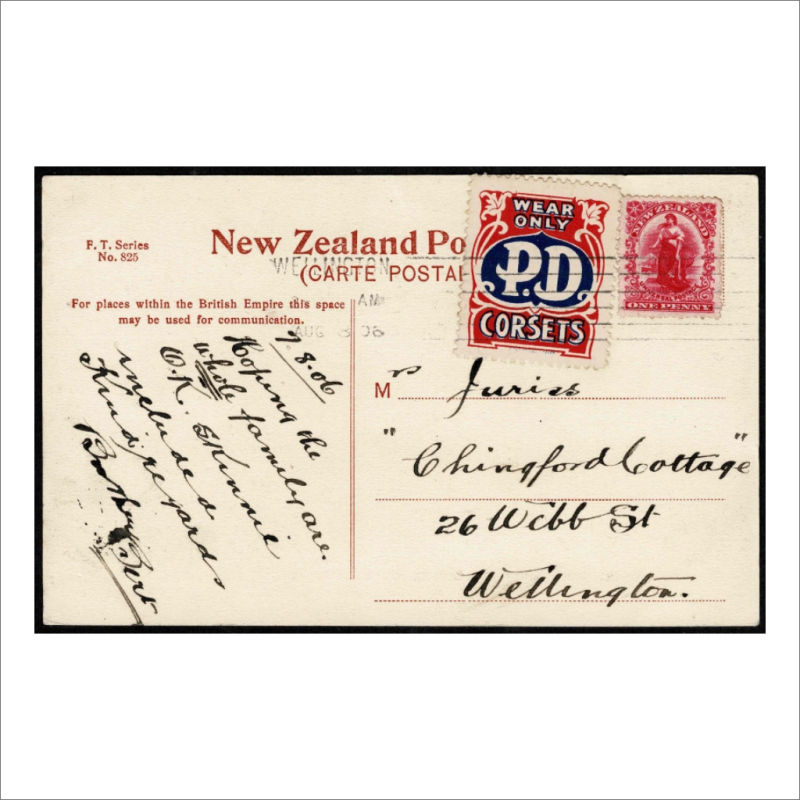 F. T. Series
No. 825
New Zealand Po
(CARTE POSTAL
For places within the British Empire this space
may be used for communication.
WELLINGTON
AM
AUG 8 06
WEAR
ONLY
P.D.
CORSETS
NEW ZEALAND
ONE PENNY
7.8.06
Hoping the
whole family are.
O.K. Skinnie
included
Kind regards
Bert
Mrs Juriss
"Chingford Cottage"
26 Webb St
Wellington.